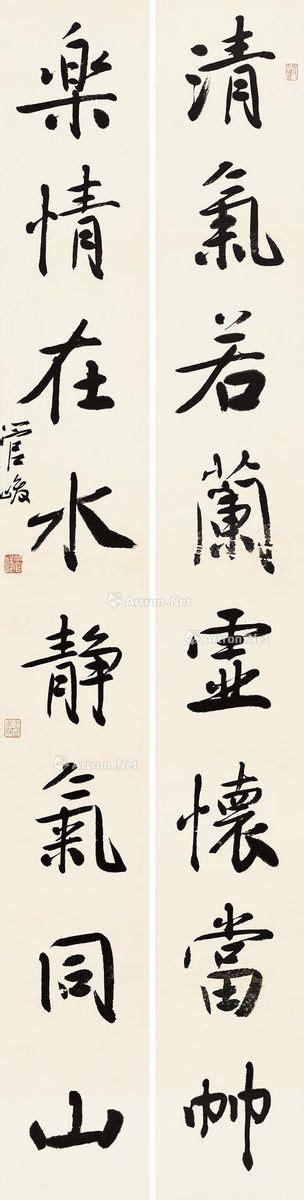 清氣若蘭虚懷當竹
楽情在水静氣同山
管峻
Artron.Net
Artron.Net
Artron.Net
Artron.Net